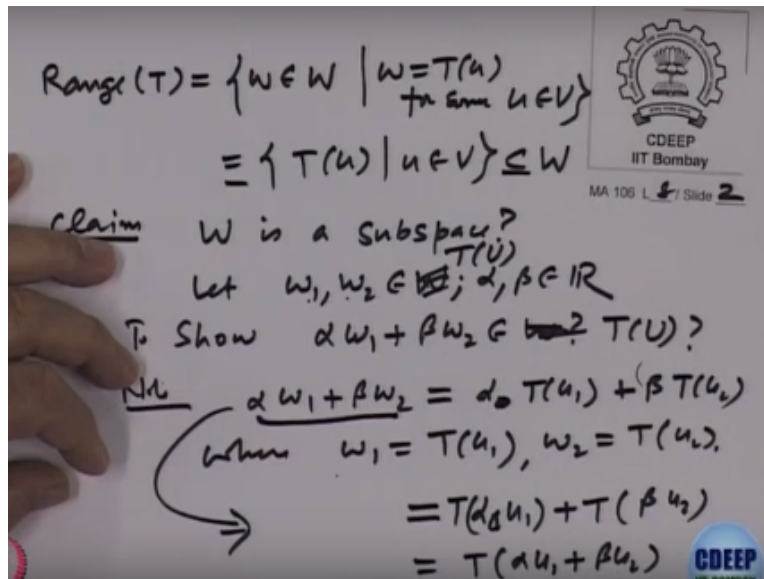 Range (T) = { w ∈ W | w = T(u)
for some u ∈ V }
= { T(u) | u ∈ V } ⊆ W
CDEEP
IIT Bombay
MA 106 L 8 / Slide 2
Claim W is a subspace?
T(U)
Let w₁, w₂ ∈ ; α, β ∈ IR
To Show α w₁ + β w₂ ∈ T(U) ?
α w₁ + β w₂ = α T(u₁) + β T(u₂)
when w₁ = T(u₁), w₂ = T(u₂).
= T(α u₁) + T(β u₂)
= T(αu₁ + βu₂)
CDEEP